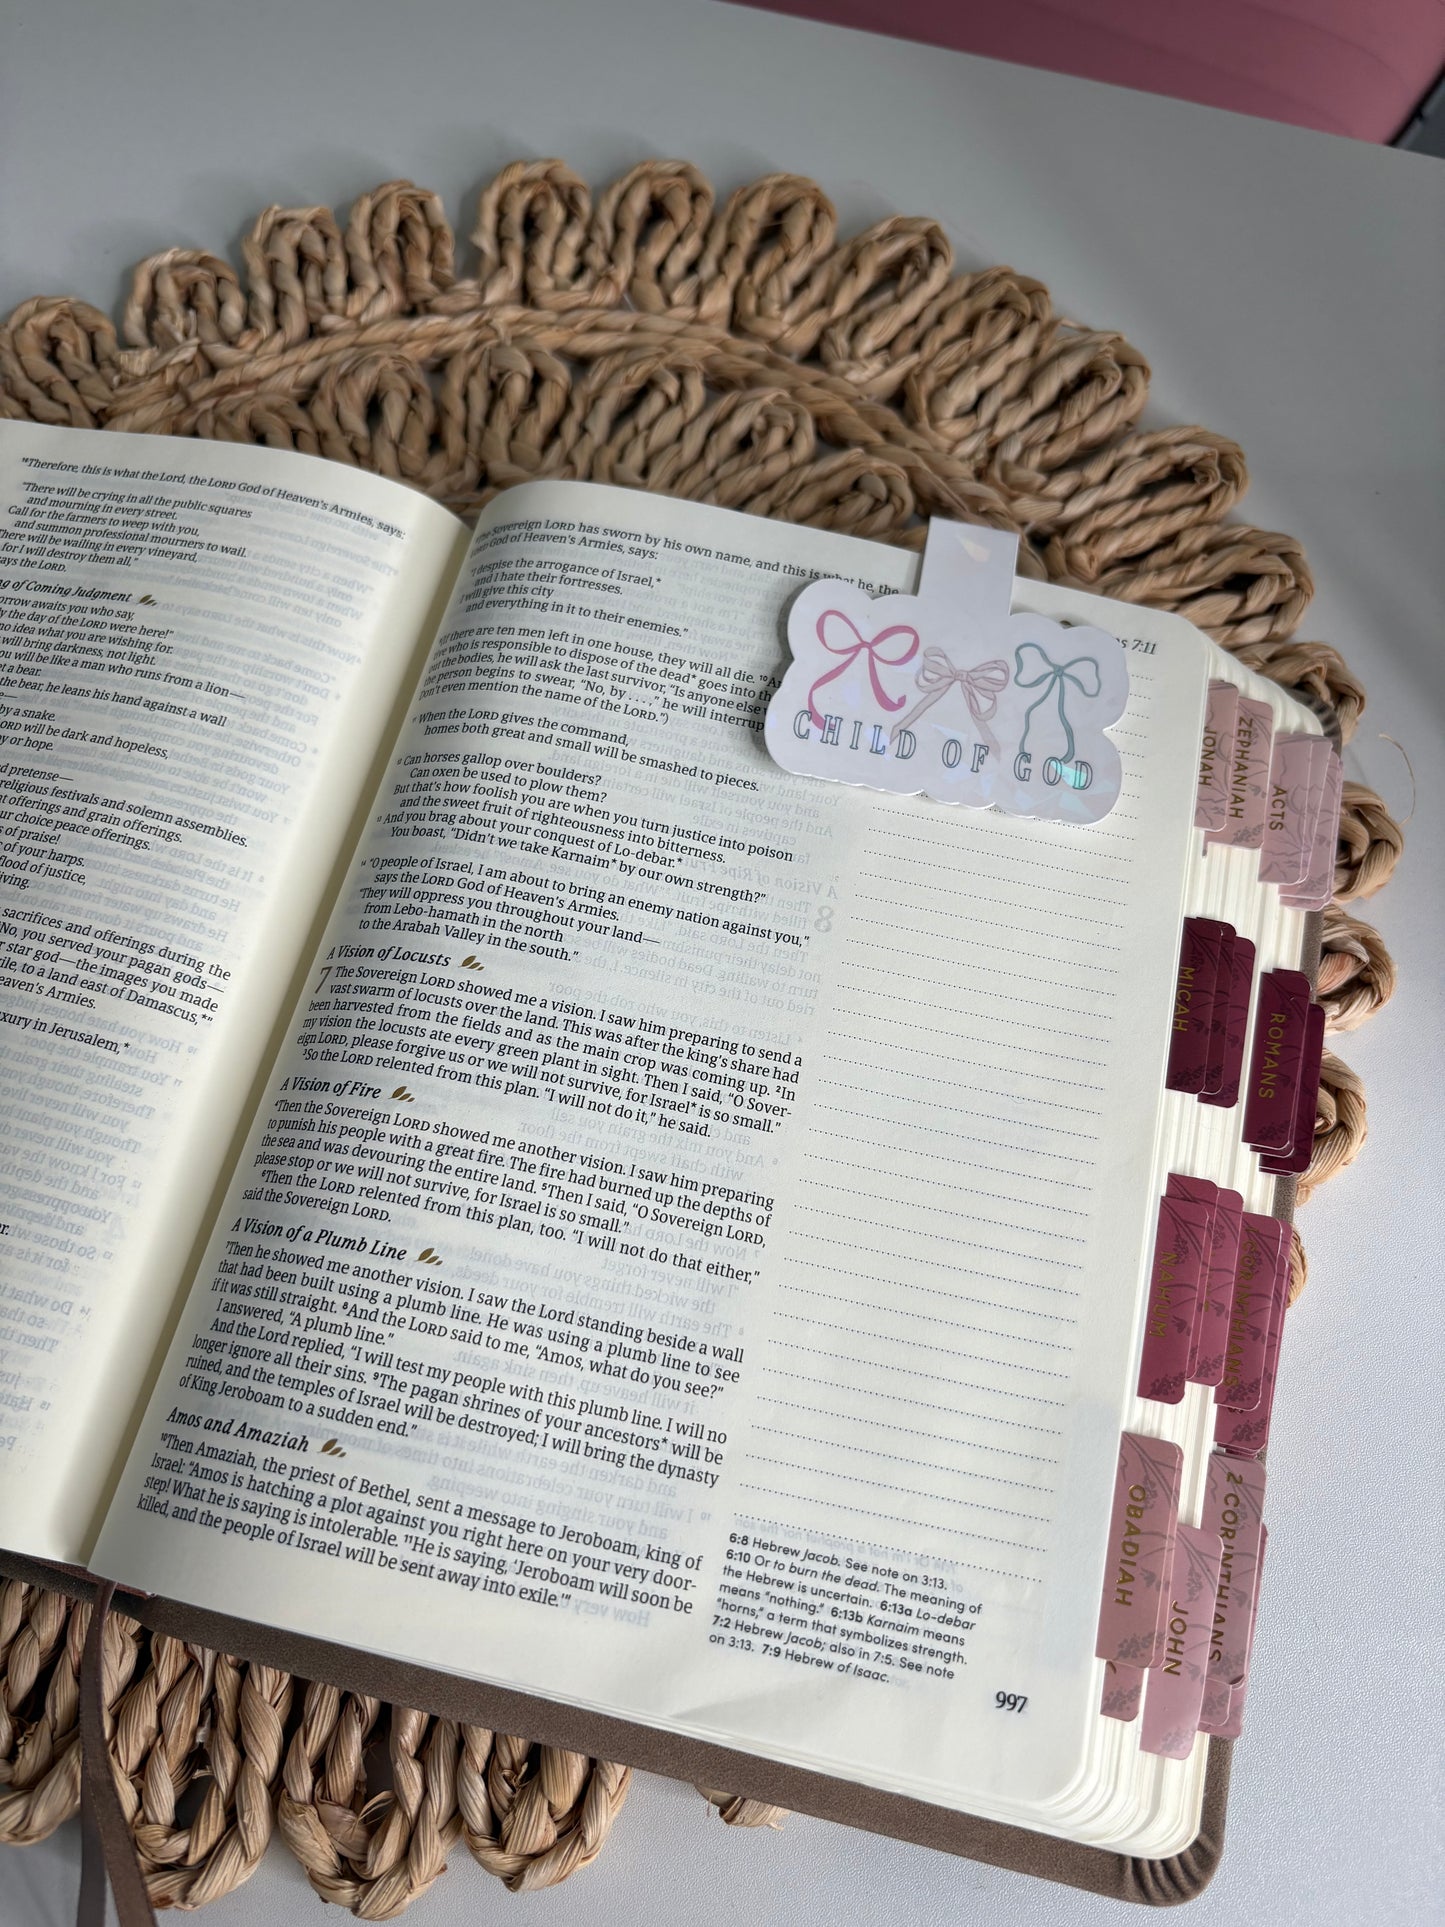 ¹⁶Therefore, this is what the Lord, the LORD God of Heaven's Armies, says:
"There will be crying in all the public squares
and mourning in every street.
Call for the farmers to weep with you,
and summon professional mourners to wail.
There will be wailing in every vineyard,
for I will destroy them all,"
says the LORD.
of Coming Judgment
sorrow awaits you who say,
the day of the LORD were here!"
no idea what you are wishing for.
will bring darkness, not light.
you will be like a man who runs from a lion—
et a bear.
the bear, he leans his hand against a wall
by a snake.
LORD will be dark and hopeless,
or hope.
pretense—
religious festivals and solemn assemblies.
offerings and grain offerings.
your choice peace offerings.
of praise!
of your harps.
flood of justice,
living.
sacrifices and offerings during the
"No, you served your pagan gods—
star god—the images you made
ile, to a land east of Damascus,*"
eaven's Armies.
luxury in Jerusalem,*
⁸The Sovereign LORD has sworn by his own name, and this is what he, the
LORD God of Heaven's Armies, says:
"I despise the arrogance of Israel,*
and I hate their fortresses.
I will give this city
and everything in it to their enemies."
⁹(If there are ten men left in one house, they will all die. ¹⁰
who is responsible to dispose of the dead* goes into th
out the bodies, he will ask the last survivor, "Is anyone else
the person begins to swear, "No, by . . . ," he will interrup
don't even mention the name of the LORD.")
¹¹ When the LORD gives the command,
homes both great and small will be smashed to pieces.
¹² Can horses gallop over boulders?
Can oxen be used to plow them?
But that's how foolish you are when you turn justice into poison
and the sweet fruit of righteousness into bitterness.
¹³ And you brag about your conquest of Lo-debar.*
You boast, "Didn't we take Karnaim* by our own strength?"
¹⁴ "O people of Israel, I am about to bring an enemy nation against you,"
says the LORD God of Heaven's Armies.
"They will oppress you throughout your land—
from Lebo-hamath in the north
to the Arabah Valley in the south."
A Vision of Locusts
7 The Sovereign LORD showed me a vision. I saw him preparing to send a
vast swarm of locusts over the land. This was after the king's share had
been harvested from the fields and as the main crop was coming up. ²In
my vision the locusts ate every green plant in sight. Then I said, "O Sover-
eign LORD, please forgive us or we will not survive, for Israel* is so small."
³So the LORD relented from this plan. "I will not do it," he said.
A Vision of Fire
⁴Then the Sovereign LORD showed me another vision. I saw him preparing
to punish his people with a great fire. The fire had burned up the depths of
the sea and was devouring the entire land. ⁵Then I said, "O Sovereign LORD,
please stop or we will not survive, for Israel is so small."
⁶Then the LORD relented from this plan, too. "I will not do that either,"
said the Sovereign LORD.
A Vision of a Plumb Line
⁷Then he showed me another vision. I saw the Lord standing beside a wall
that had been built using a plumb line. He was using a plumb line to see
if it was still straight. ⁸And the LORD said to me, "Amos, what do you see?"
I answered, "A plumb line."
And the Lord replied, "I will test my people with this plumb line. I will no
longer ignore all their sins. ⁹The pagan shrines of your ancestors* will be
ruined, and the temples of Israel will be destroyed; I will bring the dynasty
of King Jeroboam to a sudden end."
Amos and Amaziah
¹⁰Then Amaziah, the priest of Bethel, sent a message to Jeroboam, king of
Israel: "Amos is hatching a plot against you right here on your very door-
step! What he is saying is intolerable. ¹¹He is saying, 'Jeroboam will soon be
killed, and the people of Israel will be sent away into exile.'"
7:11
CHILD OF GOD
6:8 Hebrew Jacob. See note on 3:13.
6:10 Or to burn the dead. The meaning of
the Hebrew is uncertain. 6:13a Lo-debar
means "nothing." 6:13b Karnaim means
"horns," a term that symbolizes strength.
7:2 Hebrew Jacob; also in 7:5. See note
on 3:13. 7:9 Hebrew of Isaac.
997
JONAH
ZEPHANIAH
ACTS
MICAH
ROMANS
NAHUM
CORINTHIANS
OBADIAH
JOHN
2 CORINTHIANS